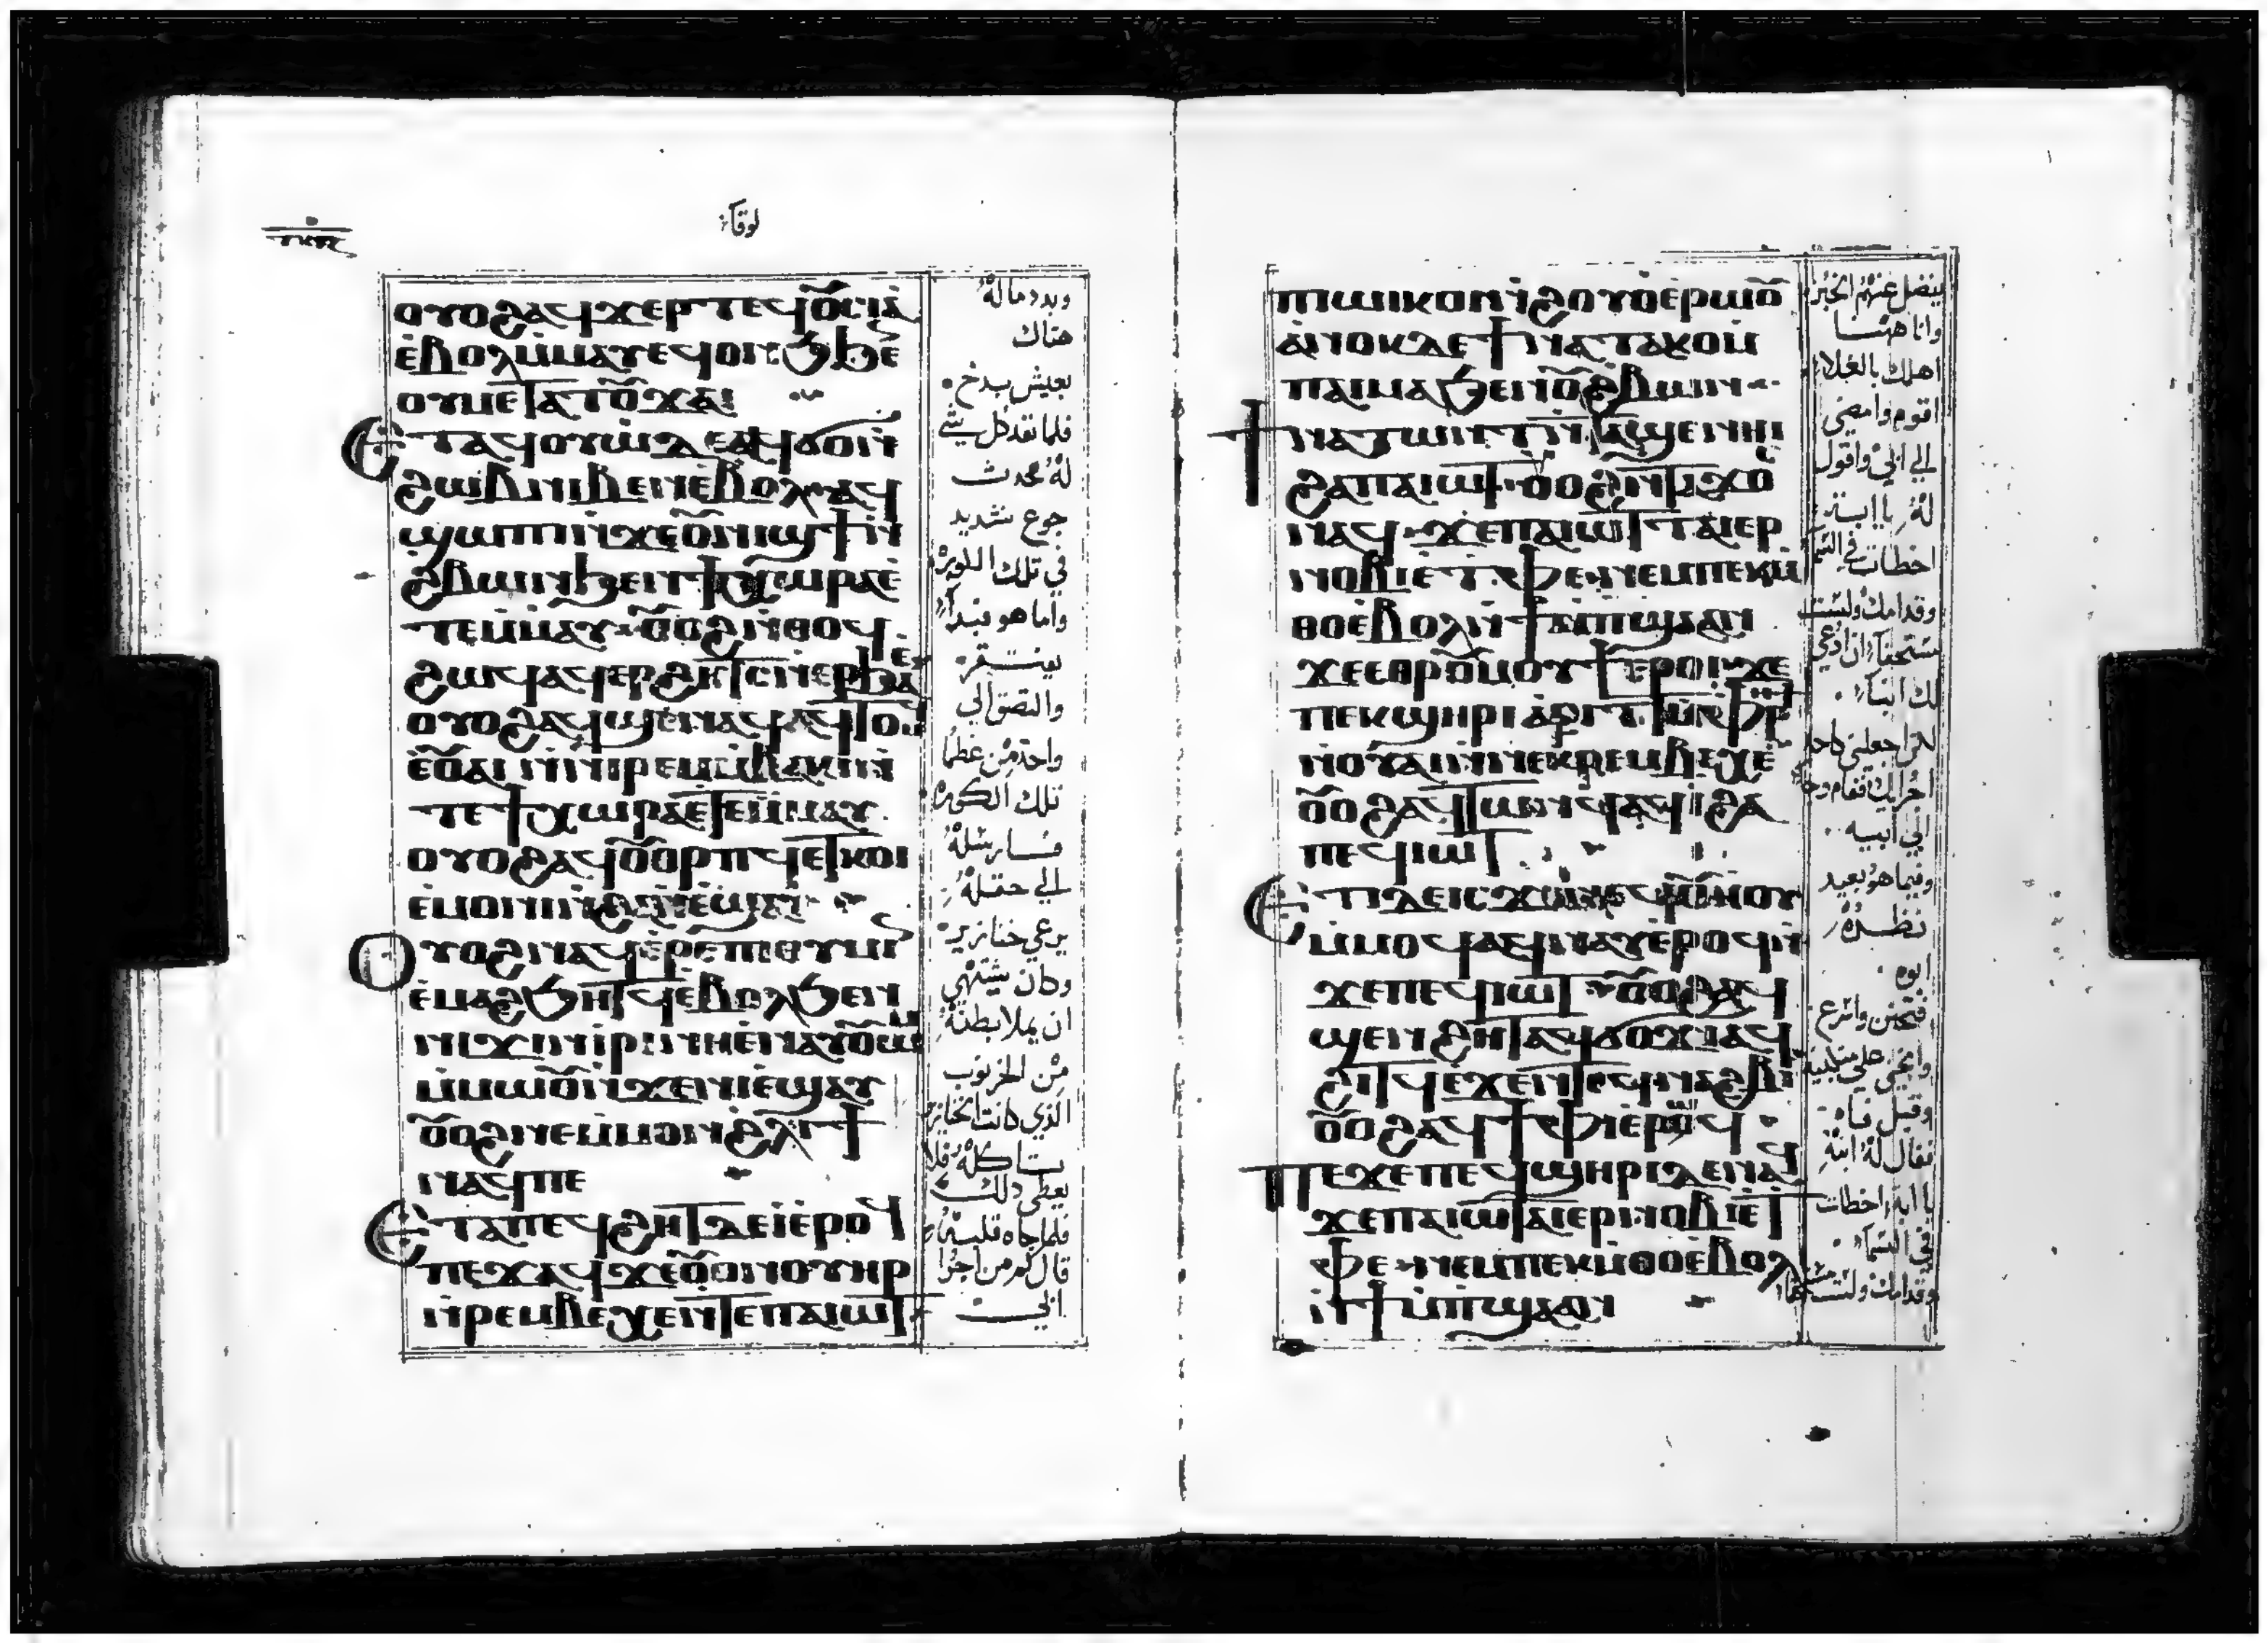 لوقا
ⲟⲩⲟϩ ⲁϥϫⲉⲣ ⲧⲉϥⲟⲩⲥⲓⲁ
ⲉⲃⲟⲗ ⲙⲙⲁⲩ ⲉϥⲟⲛϧ ϧⲉ
ⲟⲩⲙⲉⲧⲁⲧⲟⲩϫⲁⲓ
ⲉⲧⲁϥⲟⲩⲱ ⲇⲉ ⲉϥϭⲟ ⲛ
ϩⲱⲃ ⲛⲓⲃⲉⲛ ⲉⲃⲟⲗ ⲁϥ
ϣⲱⲡⲓ ⲛϫⲉ ⲟⲩⲛⲓϣϯ ⲛ
ϩⲃⲱⲛ ϧⲉⲛ ϯⲭⲱⲣⲁ ⲉ
ⲧⲉⲙⲙⲁⲩ ⲟⲩⲟϩ ⲛⲑⲟϥ
ϩⲱϥ ⲁϥⲉⲣϩⲏⲧⲥ ⲛⲉⲣϧⲁⲉ
ⲟⲩⲟϩ ⲁϥϣⲉⲛⲁϥ ⲁϥⲧⲟⲙϥ
ⲉⲟⲩⲁⲓ ⲛⲛⲓⲣⲉⲙⲙⲃⲁⲕⲓ ⲛ
ⲧⲉ ϯⲭⲱⲣⲁ ⲉⲧⲉⲙⲙⲁⲩ
ⲟⲩⲟϩ ⲁϥⲟⲩⲟⲣⲡϥ ⲉⲧⲕⲟⲓ
ⲉⲙⲟⲛⲓ ⲛϩⲁⲛⲉϣⲁⲩ
ⲟⲩⲟϩ ⲛⲁϥⲉⲣⲉⲡⲓⲑⲩⲙⲓⲛ
ⲉⲙⲁϩ ϧⲏⲧϥ ⲉⲃⲟⲗ ϧⲉⲛ
ⲛⲓϫⲓⲛⲓⲣⲓ ⲛⲏ ⲉⲛⲁⲩⲟⲩⲱⲙ
ⲙⲙⲱⲟⲩ ⲛϫⲉ ⲛⲓⲉϣⲁⲩ
ⲟⲩⲟϩ ⲛⲉⲙⲙⲟⲛ ϩⲗⲓ ϯ
ⲛⲁϥ ⲡⲉ
ⲉⲧⲁ ⲡⲉϥϩⲏⲧ ⲇⲉ ⲓ ⲉⲣⲟϥ
ⲡⲉϫⲁϥ ϫⲉ ⲟⲩⲟⲛ ⲟⲩⲏⲣ
ⲛⲣⲉⲙⲃⲉⲭⲉ ⲛⲧⲉ ⲡⲁⲓⲱⲧ
وبدد ماله
هناك
بعيش بدخ
فلما نفد كل شي
له حدث
جوع شديد
في تلك الكوره
واما هو فبدا
يفتقر
والتصق الي
واحد من عظما
تلك الكوره
فارسله
الي حقله
يرعي خنازير
وكان يشتهي
ان يملا بطنه
من الخرنوب
الذي كانت الخنازير
تاكله فلا
يعطي ذلك
فلما جاه قلبه
قال كم من اجرا
ابي
ⲡⲱⲓⲕ ⲟⲛ ⲛϩⲟⲩⲟ ⲉⲣⲱⲟⲩ
ⲁⲛⲟⲕ ⲇⲉ ϯⲛⲁⲧⲁⲕⲟ ⲙ
ⲡⲁⲓⲙⲁ ϧⲉⲛ ⲟⲩϩⲃⲱⲛ
ϯⲛⲁⲧⲱⲛⲧ ⲛⲧⲁϣⲉⲛⲏⲓ
ϩⲁ ⲡⲁⲓⲱⲧ ⲟⲩⲟϩ ⲛⲧⲁϫⲟⲥ
ⲛⲁϥ ϫⲉ ⲡⲁⲓⲱⲧ ⲁⲓⲉⲣ
ⲛⲟⲃⲓ ⲉⲧⲫⲉ ⲛⲉⲙ ⲡⲉⲕⲙ
ⲑⲟ ⲉⲃⲟⲗ ⲛϯⲙⲡϣⲁ ⲁⲛ
ϫⲉ ⲉⲑⲣⲟⲩⲙⲟⲩϯ ⲉⲣⲟⲓ ϫⲉ
ⲡⲉⲕϣⲏⲣⲓ ⲁⲣⲓⲧ ⲙⲫⲣⲏϯ
ⲛⲟⲩⲁⲓ ⲛⲛⲉⲕⲣⲉⲙⲃⲉⲭⲉ
ⲟⲩⲟϩ ⲁϥⲧⲱⲛϥ ⲁϥⲓ ϩⲁ
ⲡⲉϥⲓⲱⲧ
ⲉⲧⲓ ⲇⲉ ⲓⲥϫⲉⲛ ⲉϥⲟⲩⲏⲟⲩ
ⲙⲙⲟϥ ⲁϥⲛⲁⲩ ⲉⲣⲟϥ ⲛ
ϫⲉ ⲡⲉϥⲓⲱⲧ ⲟⲩⲟϩ ⲁϥ
ϣⲉⲛϩⲏⲧ ⲁϥϭⲟϫⲓ ⲁϥ
ϩⲓⲧϥ ⲉϫⲉⲛ ⲧⲉϥⲛⲁϩⲃⲓ
ⲟⲩⲟϩ ⲁϥϯⲫⲓ ⲉⲣⲱϥ
ⲡⲉϫⲉ ⲡⲉϥϣⲏⲣⲓ ⲇⲉ ⲛⲁϥ
ϫⲉ ⲡⲁⲓⲱⲧ ⲁⲓⲉⲣⲛⲟⲃⲓ ⲉⲧ
ⲫⲉ ⲛⲉⲙ ⲡⲉⲕⲙⲑⲟ ⲉⲃⲟⲗ
ⲛϯⲙⲡϣⲁ ⲁⲛ
يفضل عنهم الخبز
وانا ههنا
اهلك بالغلا
اقوم وامضي
الي ابي واقول
له يا ابت
اخطات في السما
وقدامك ولست
مستحقا ان ادعي
لك ابنا
اجعلني كاحد
اجرايك فقام وجا
الي ابيه
وفيما هو بعيد
نظره
ابوه
فتحنن واسرع
وقبل فاه
فقال له ابنه
يا ابه اخطات
في السما
وقدامك ولست